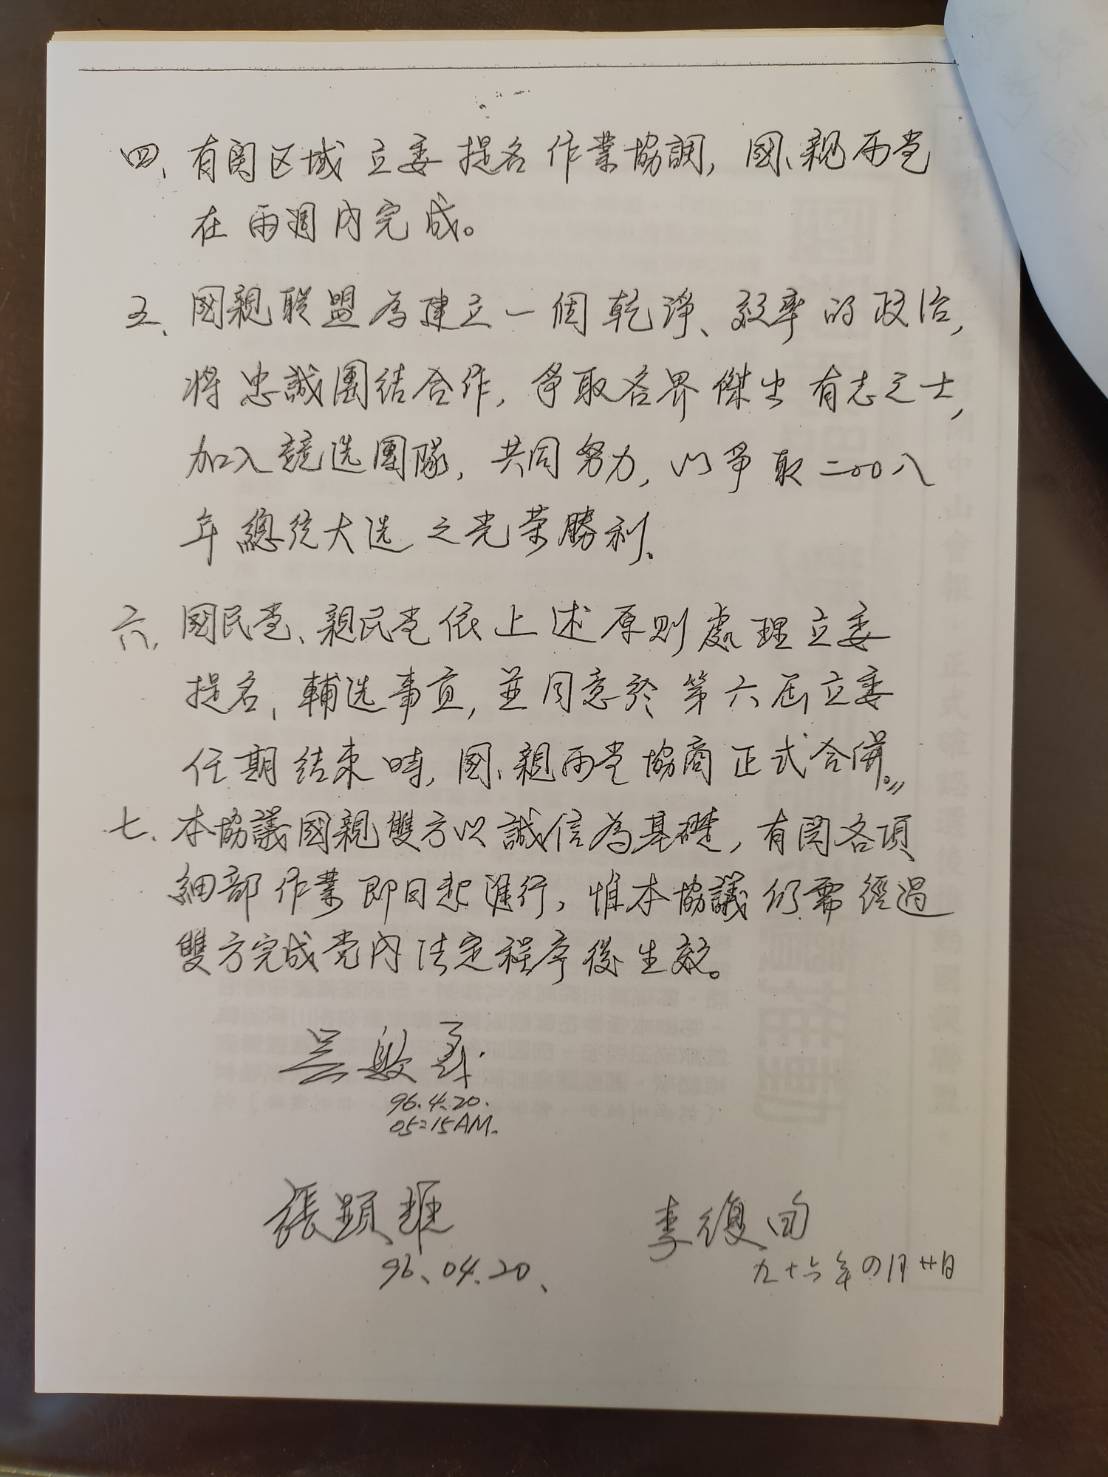 四、有関区域立委提名作業協調，國、親両党
在両週内完成。
五、國親联盟為建立一個乾淨、効率的政治，
将忠誠團结合作，爭取各界傑出有志之士，
加入競选團隊，共同努力，以爭取二00八
年總统大选之光荣勝利、
六、國民党、親民党依上述原則處理立委
提名、輔选事宜，並同意於第六屆立委
任期结束時，國、親両党協商正式合併。
七、本協議國親雙方以誠信為基礎，有関各項
細部作業即日起進行，惟本協議仍需經過
雙方完成党内法定程序後生效。
96.4.20.
05:15AM.
張顕雄
96.04.20、
李復甸
九十六年四月廿日